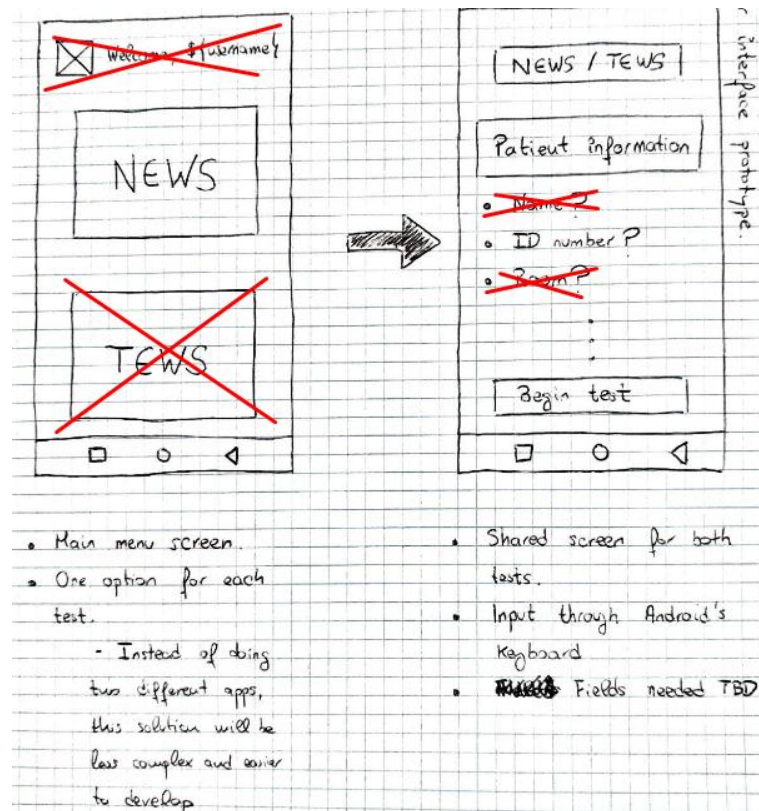 Welcome, ${username}
NEWS
TEWS
NEWS / TEWS
Patient information
• Name?
• ID number?
• Room?
Begin test
interface prototype.
• Main menu screen.
• One option for each
test.
- Instead of doing
two different apps,
this solution will be
less complex and easier
to develop
• Shared screen for both
tests.
• Input through Android's
Keyboard
• Fields needed TBD